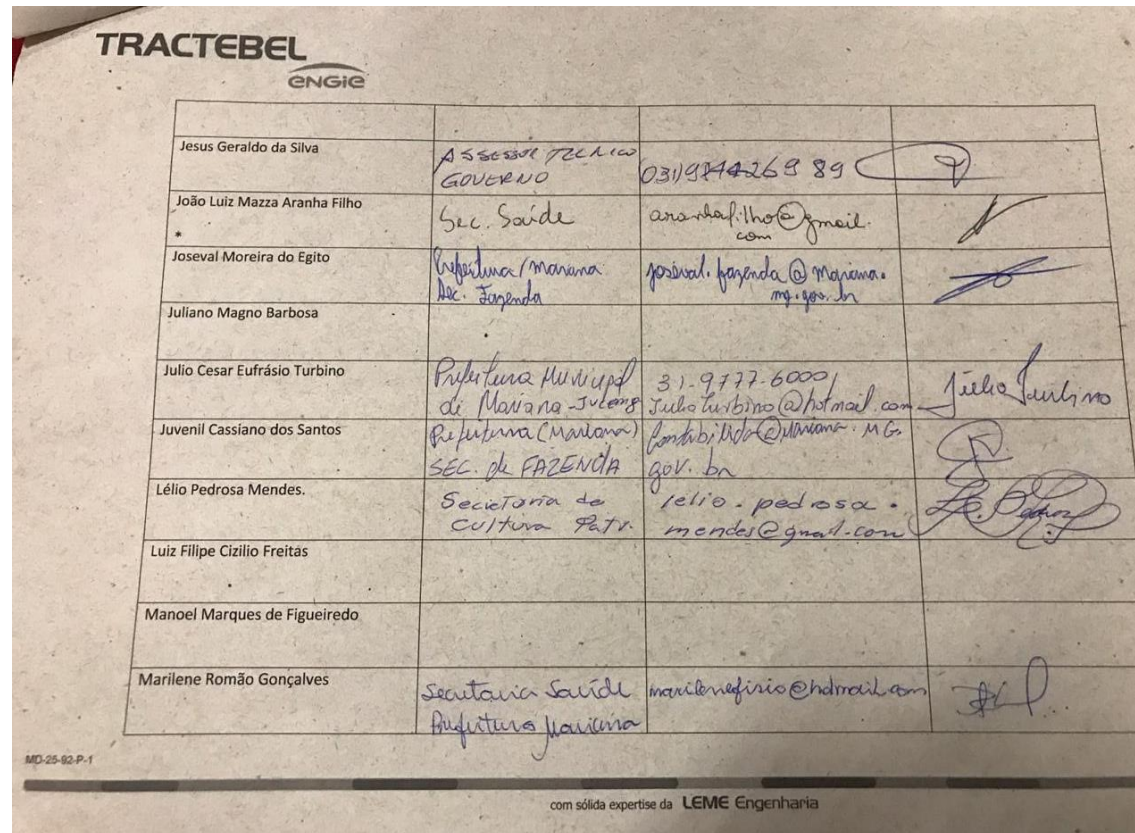 TRACTEBEL
ENGIE
Jesus Geraldo da Silva
ASSESSOR TECNICO
GOVERNO
João Luiz Mazza Aranha Filho
*
Sec. Saúde
aranhafilho@gmail.
com
Joseval Moreira do Egito
Prefeitura/Mariana
Sec. Fazenda
joseval.fazenda@mariana.
mg.gov.br
Juliano Magno Barbosa
Julio Cesar Eufrásio Turbino
Prefeitura Municipal
de Mariana -
31-9777-6000/
julioturbino@hotmail.com
Julio Turbino
Juvenil Cassiano dos Santos
Prefeitura (Mariana)
SEC. de FAZENDA
@Mariana. MG.
gov. br
Lélio Pedrosa Mendes.
Secretaria de
Cultura Patr.
lelio.pedrosa.
mendes@gmail.com
Luiz Filipe Cizilio Freitas
Manoel Marques de Figueiredo
Marilene Romão Gonçalves
Secretaria Saúde
Prefeitura Mariana
marilenefisio@hotmail.com
MD-25-92-P-1
com sólida expertise da LEME Engenharia